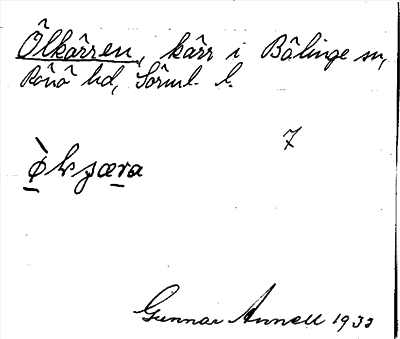 Ölkärren, kärr i Bälinge sn,
Rönö hd, Sörml. l.
7
Gunnar Annell 1933